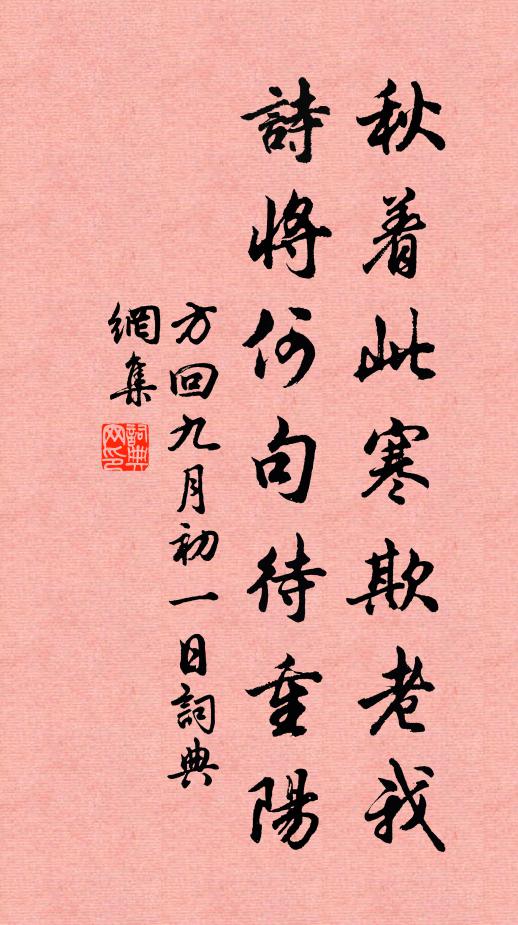 秋着此寒欺老我
詩將何句待重陽
方回九月初一日詞典
網集
詞典
网印